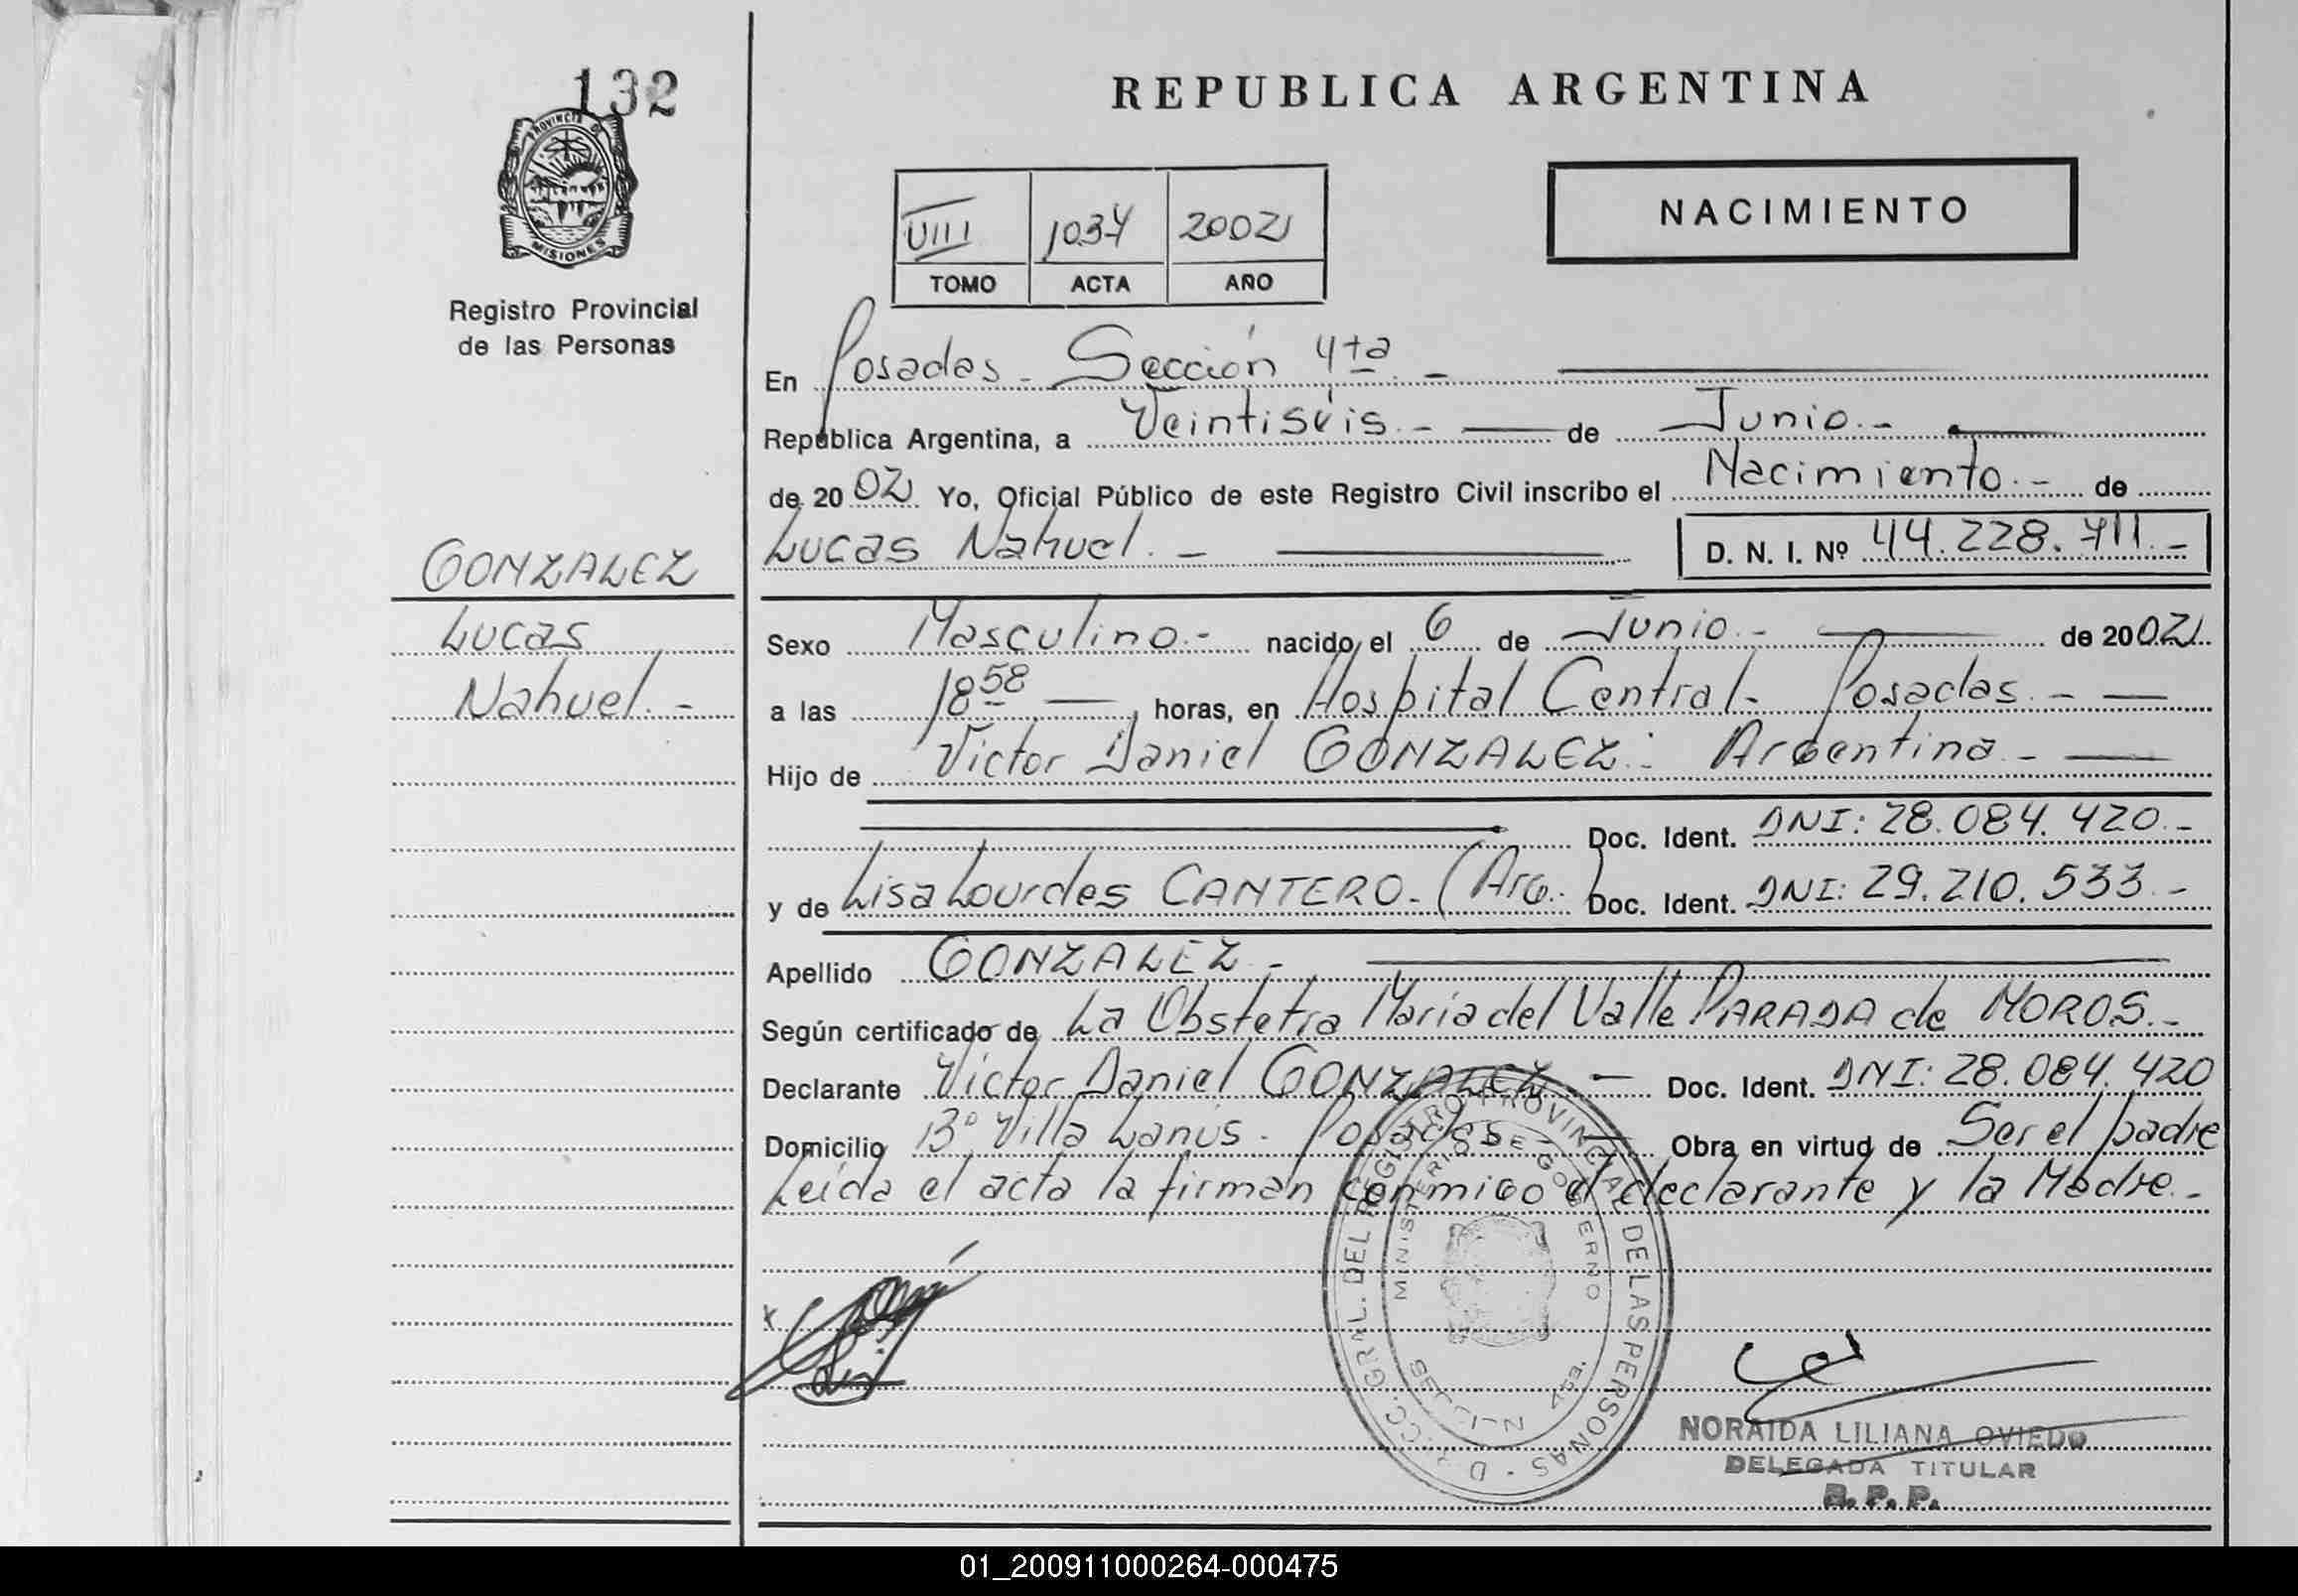 132
PROVINCIA DE
MISIONES
Registro Provincial
de las Personas
REPUBLICA ARGENTINA
NACIMIENTO
VIII 1034 2002
TOMO ACTA AÑO
En Posadas - Sección 4ta. -
República Argentina, a Veintiséis.- de Junio.-
de 2002 Yo, Oficial Público de este Registro Civil inscribo el Nacimiento.- de
Lucas Nahuel.- D. N. I. Nº 44.228.711.-
GONZALEZ
Lucas
Nahuel.-
Sexo Masculino.- nacido el 6 de Junio.- de 2002
a las 18 58 horas, en Hospital Central - Posadas.-
Hijo de Victor Daniel GONZALEZ.- Argentina.-
Doc. Ident. DNI: 28.084.420.-
y de Lisa Lourdes CANTERO.- (Arg.) Doc. Ident. DNI: 29.210.533.-
Apellido GONZALEZ.-
Según certificado de La Obstetra María del Valle PARADA de MOROS.-
Declarante Victor Daniel GONZALEZ.- Doc. Ident. DNI: 28.084.420
Domicilio Bº Villa Lanús - Posadas.- Obra en virtud de Ser el padre
Leída el acta la firman conmigo el declarante y la Madre.-
D.R.CC. GRAL. DEL REGISTRO PROVINCIAL DE LAS PERSONAS
MINISTERIO DE GOBIERNO
SECCION 4ta.
NORAIDA LILIANA OVIEDO
DELEGADA TITULAR
R. P. P.
01_200911000264-000475